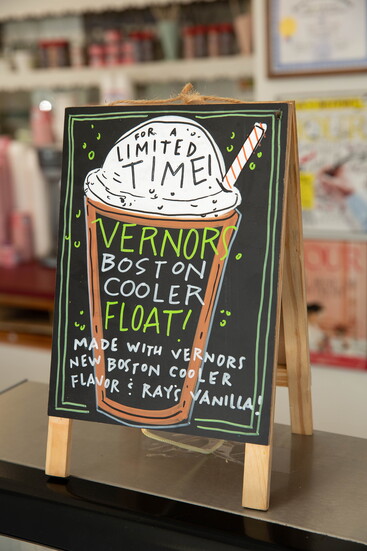 FOR A
LIMITED
TIME!
VERNORS
BOSTON
COOLER
FLOAT!
MADE WITH VERNORS
NEW BOSTON COOLER
FLAVOR & RAY'S VANILLA!